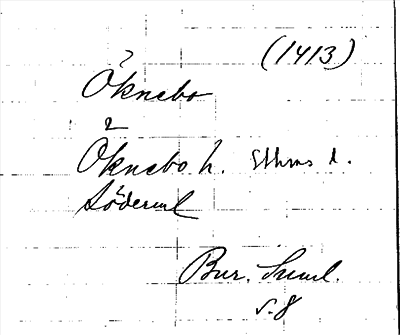 (1413)
Öknebo
2
Öknebo h. Sthms l.
Söderml
Bur. Suml.
s. 8